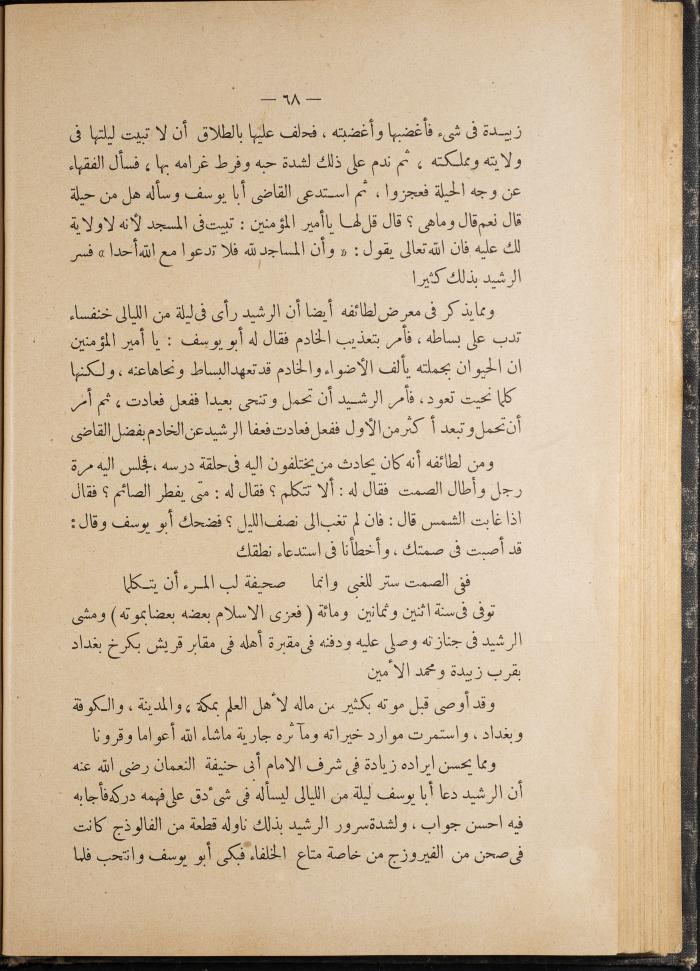 — ٦٨ —
زبيدة فى شىء فأغضبها وأغضبته ، فحلف عليها بالطلاق أن لا تبيت ليلتها فى
ولايته ومملكته ، ثم ندم على ذلك لشدة حبه وفرط غرامه بها ، فسأل الفقهاء
عن وجه الحيلة فعجزوا ، ثم استدعى القاضى أبا يوسف وسأله هل من حيلة
قال نعم قال وماهى ؟ قال قل لها ياأمير المؤمنين : تبيت فى المسجد لأنه لاولاية
لك عليه فان الله تعالى يقول : « وأن المساجد لله فلا تدعوا مع الله أحدا » فسر
الرشيد بذلك كثيرا
ومما يذكر فى معرض لطائفه أيضا أن الرشيد رأى فى ليلة من الليالى خنفساء
تدب على بساطه ، فأمر بتعذيب الخادم فقال له أبو يوسف : يا أمير المؤمنين
ان الحيوان بجملته يألف الأضواء والخادم قد تعهد البساط ونحاها عنه ، ولكنها
كلما نحيت تعود ، فأمر الرشيد أن تحمل وتنحى بعيدا ففعل فعادت ، ثم أمر
أن تحمل وتبعد أكثر من الأول ففعل فعادت فعفا الرشيد عن الخادم بفضل القاضى
ومن لطائفه أنه كان يحادث من يختلفون اليه فى حلقة درسه ، فجلس اليه مرة
رجل وأطال الصمت فقال له : ألا تتكلم ؟ فقال له : متى يفطر الصائم ؟ فقال
اذا غابت الشمس قال : فان لم تغب الى نصف الليل ؟ فضحك أبو يوسف وقال :
قد أصبت فى صمتك ، وأخطأنا فى استدعاء نطقك
ففى الصمت ستر للغبى وانما صحيفة لب المرء أن يتكلما
توفى فى سنة اثنين وثمانين ومائة ( فعزى الاسلام بعضه بعضا بموته ) ومشى
الرشيد فى جنازته وصلى عليه ودفنه فى مقبرة أهله فى مقابر قريش بكرخ بغداد
بقرب زبيدة ومحمد الأمين
وقد أوصى قبل موته بكثير من ماله لأهل العلم بمكة ، والمدينة ، والكوفة
وبغداد ، واستمرت موارد خيراته ومآثره جارية ماشاء الله أعواما وقرونا
ومما يحسن ايراده زيادة فى شرف الامام أبى حنيفة النعمان رضى الله عنه
أن الرشيد دعا أبا يوسف ليلة من الليالى ليسأله فى شىء دق على فهمه دركه فأجابه
فيه احسن جواب ، ولشدة سرور الرشيد بذلك ناوله قطعة من الفالوذج كانت
فى صحن من الفيروزج من خاصة متاع الخلفاء فبكى أبو يوسف وانتحب فلما